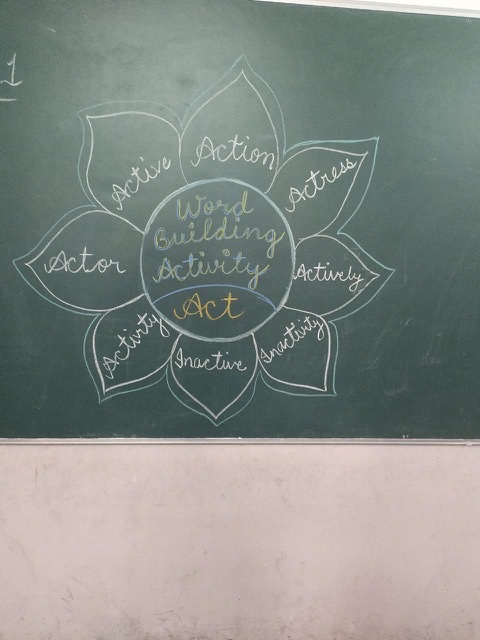 1
Word
Building
Activity
Act
Action
Actress
Actively
Inactivity
Inactive
Activity
Actor
Active